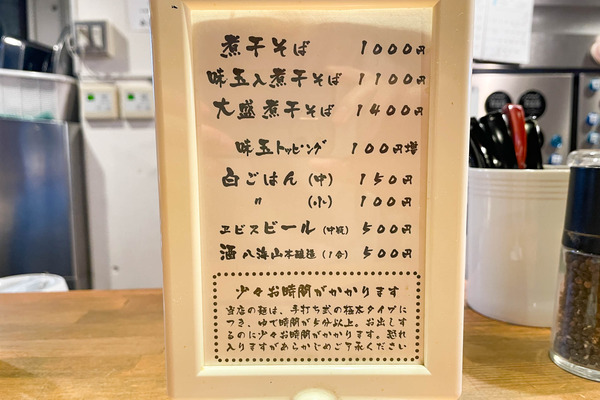 煮干そば 1000円
味玉入煮干そば 1100円
大盛煮干そば 1400円
味玉トッピング 100円増
白ごはん(中) 150円
〃 (小) 100円
ヱビスビール(中瓶) 500円
酒 八海山本醸造(1合) 500円
少々お時間がかかります
当店の麺は、手打ち式の極太タイプに
つき、ゆで時間が5分以上。お出しす
るのに少々お時間がかかります。恐れ
入りますがあらかじめご了承ください